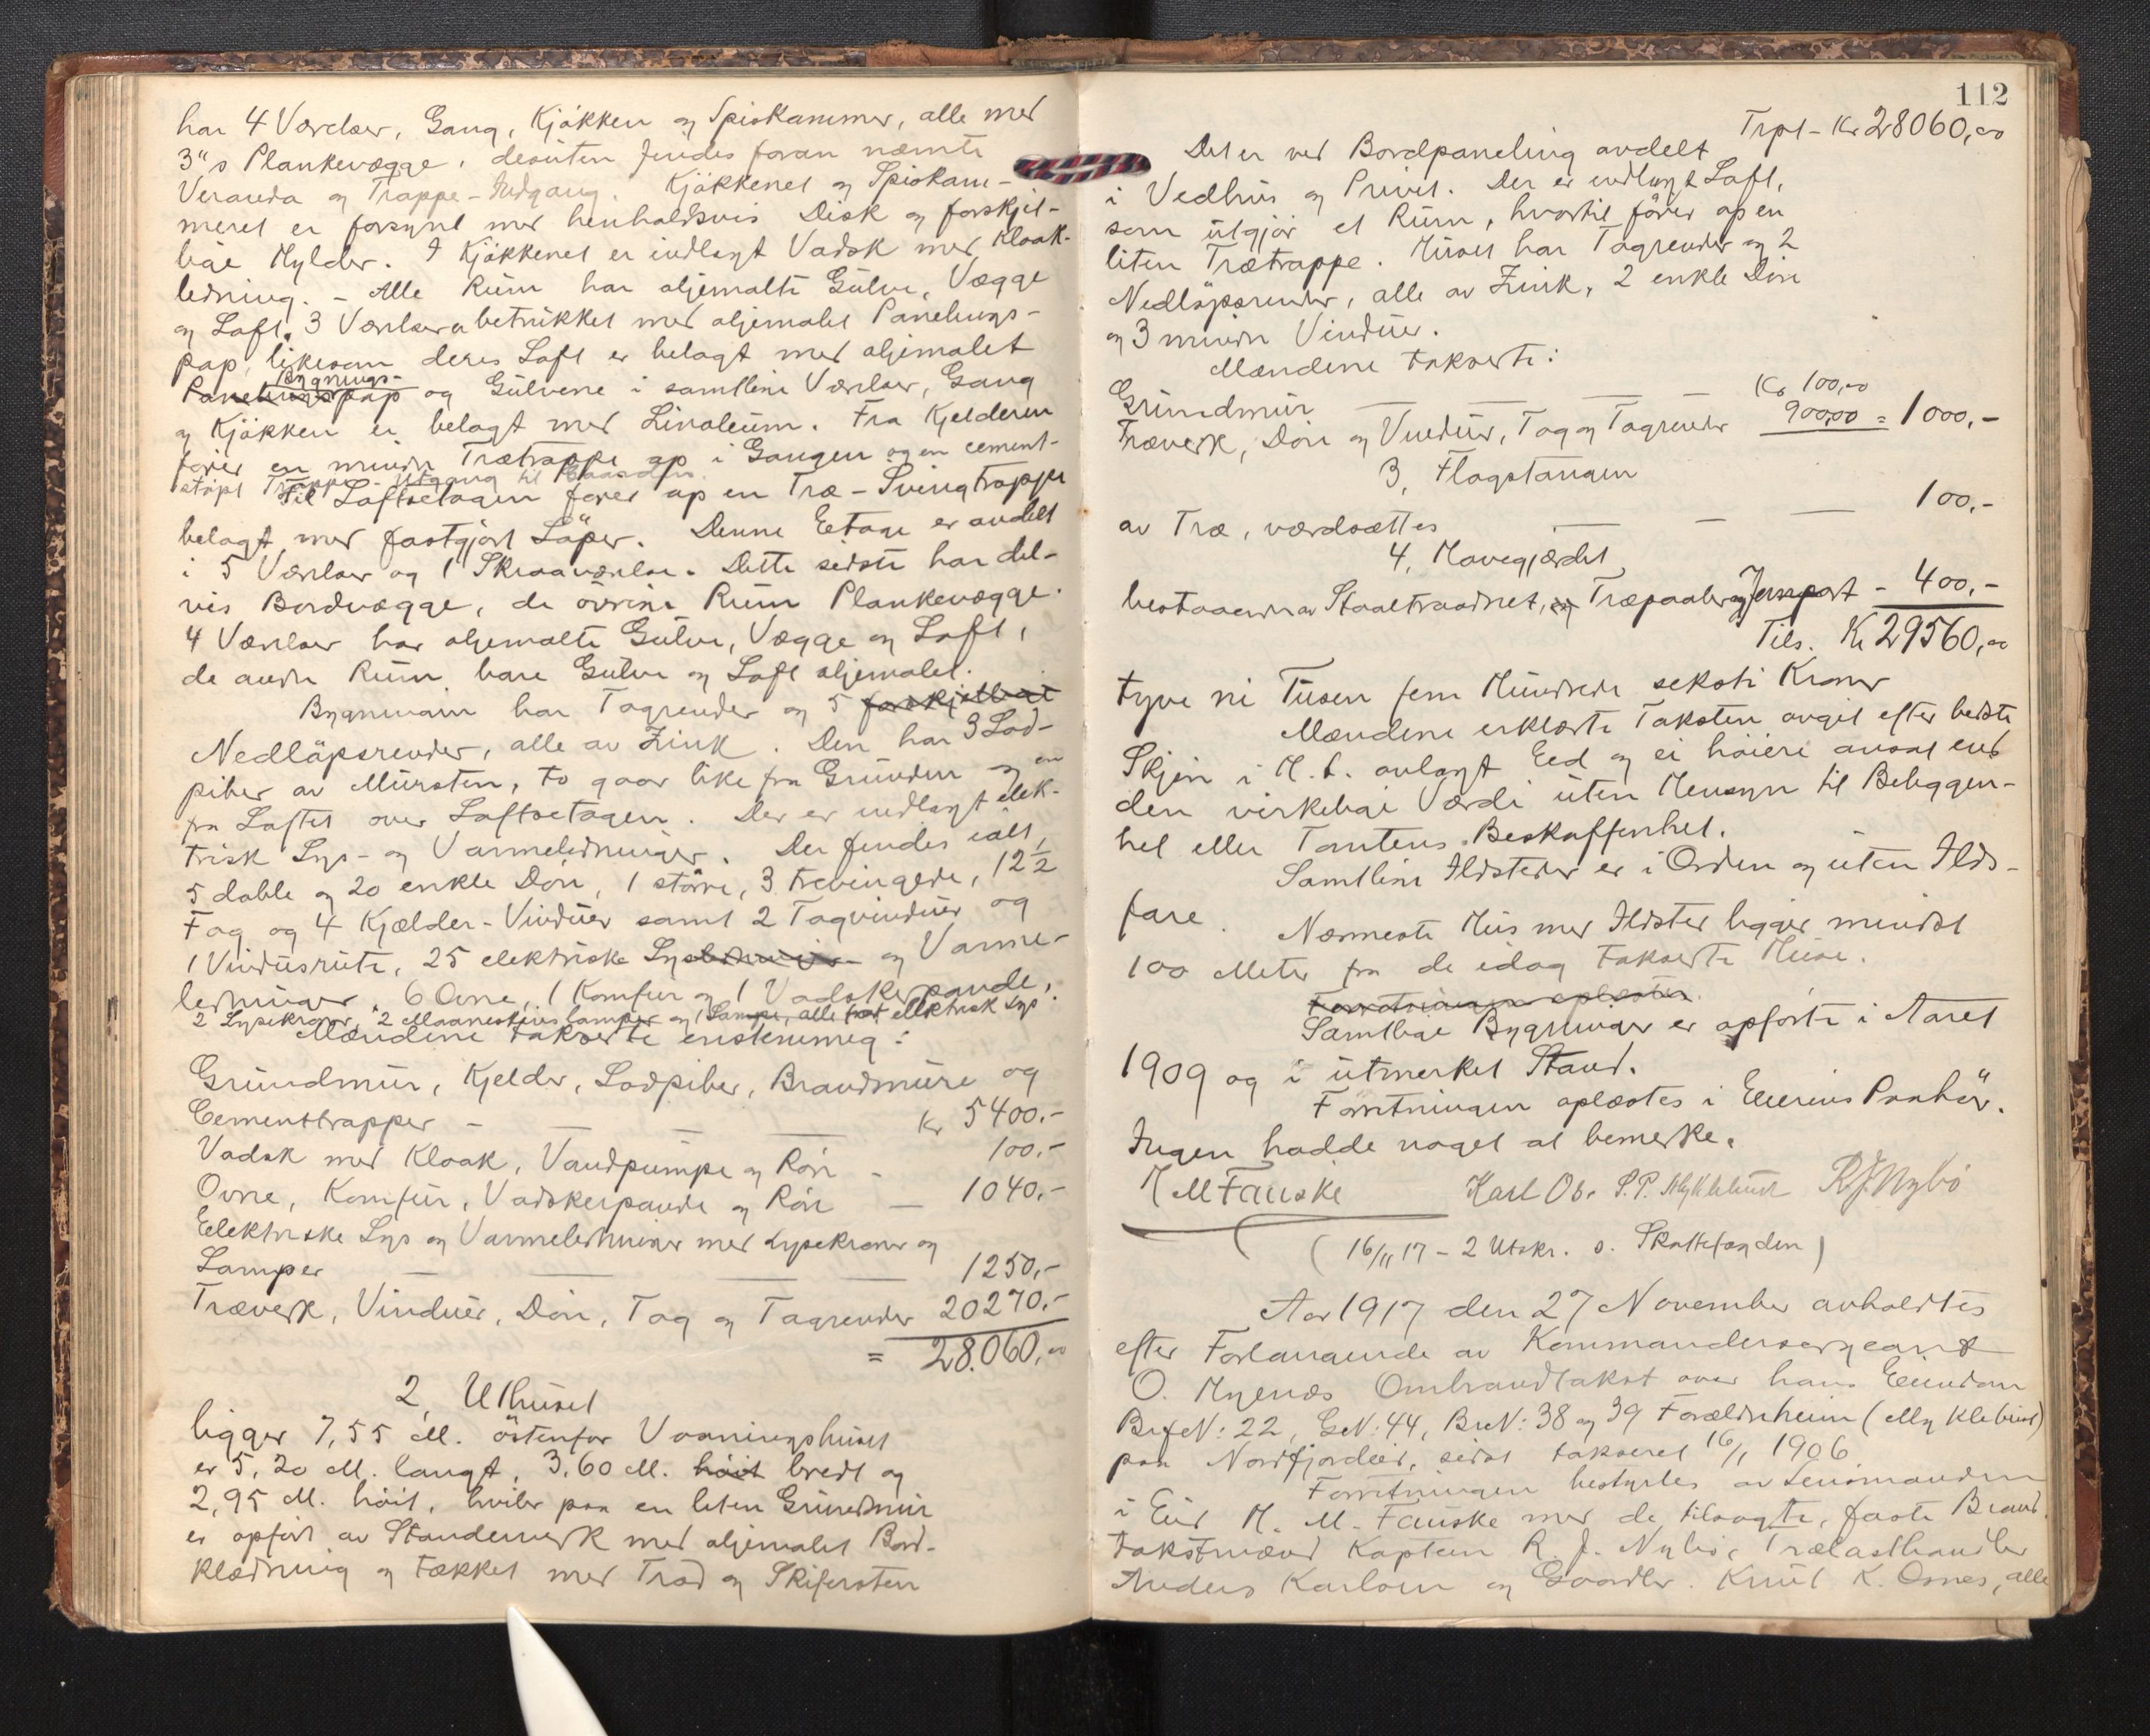 har 4 Værelser, Gang, Kjøkken og Spiskammer, alle med
3"s Plankevægge, desuten findes foran nævnte
Veranda og Trappe-Indgang. Kjøkkenet og Spiskam-
meret er forsynt med henholdsvis Disk og forskjel-
lige Hylder. I Kjøkkenet er indlagt Vadsk med Kloak-
ledning. - Alle Rum har oljemalte Gulve, Vægge
og Loft, 3 Værelser er betrukket med oljemalet Panelings-
pap, likesom deres Loft er belagt med oljemalet
Bygnings-
Panelingspap og Gulvene i samtlige Værelser, Gang
og Kjøkken er belagt med Linoleum. Fra Kjelderen
fører en mindre Trætrappe op i Gangen og en cement-
støpt Trappe - Utgang til Gaarden.
Til Loftsetagen fører op en Træ-Svingtrappe
belagt med fastgjort Løper. Denne Etage er avdelt
i 5 Værelser og 1 Skraaværelse. Dette sidste har del-
vis Bordvægge, de øvrige Rum Plankevægge.
4 Værelser har oljemalte Gulve, Vægge og Loft,
de andre Rum bare Gulve og Loft oljemalet.
Bygningen har Tagrender og 5 forskjellige
Nedløpsrender, alle av Zink. Den har 3 Lod-
piber av Mursten, to gaar like fra Grunden og en
fra Loftet over Loftsetagen. Der er indlagt elek-
trisk Lys- og Varmeledninger. Der findes ialt,
5 doble og 20 enkle Døre, 1 større, 3 trevingede, 12 1/2
Fag og 4 Kjælder-Vinduer samt 2 Tagvinduer og
1 Vindusrute, 25 elektriske Lysledninger og Varme-
ledninger, 6 Ovne, 1 Komfur og 1 Vadskerpande,
2 Lysekroner, 2 Maaneskinslamper og Lampe, alle for elektrisk Lys.
Mændene takserte enstemmig:
Grundmur, Kjelder, Lodpiber, Brandmure og
Cementtrapper - — — kr 5400.-
Vadsk med Kloak, Vandpumpe og Rør - 100.-
Ovne, Komfur, Vadskerpande og Rør — 1040.-
Elektriske Lys og Varmeledninger med Lysekroner og
Lamper — — — — 1250,-
Træverk, Vinduer, Døre, Tag og Tagrender 20270.-
= 28.060,00
2, Uthuset
ligger 7,55 M. østenfor Vaaningshuset
er 5,20 M. langt, 3.60 M. høit bredt og
2,95 M. høit, hviler paa en liten Grundmur
er opført av Standerverk med oljemalet Bord-
klædning og tækket med Trod og Skifersten
112
Trpt - Kr 28060,00
Det er ved Bordpaneling avdelt
i Vedhus og Privet. Der er indlagt Loft,
som utgjør et Rum, hvortil fører op en
liten Trætrappe. Huset har Tagrender og 2
Nedløpsrender, alle av Zink, 2 enkle Døre
og 3 mindre Vinduer.
Mændene takserte:
Grundmur — — — — Kr 100,00
Træverk, Døre og Vinduer, Tag og Tagrender 900,00 = 1000,-
3, Flagstangen
av Træ, værdsættes — — — 100,-
4, Havegjærdet
bestaaende av Staaltraadnet, og Træpaaler og Jernport - 400,-
Tils. Kr 29560,00
tyve ni Tusen fem Hundrede seksti Kroner
Mændene erklærte Taksten avgit efter bedste
Skjøn i H. t. avlagt Eed og ei høiere ansat end
den virkelige Værdi uten Hensyn til Beliggen-
het eller Tomtens Beskaffenhet.
Samtlige Ildsteder er i Orden og uten Ilds-
fare. Nærmeste Hus med Ildsted ligger mindst
100 Meter fra de idag takserte Huse.
Forretningen oplæstes
Samtlige Bygninger er opførte i Aaret
1909 og i utmerket Stand.
Forretningen oplæstes i Eierens Paahør.
Ingen hadde noget at bemerke.
H M Fauske Karl Os. S. P. Myklebust R J Nybø
(16/11 17 - 2 Utskr. s. Skattefogden)
Aar 1917 den 27 November avholdtes
efter Forlangende av Kommandersergeant
O. Myenæs Ombrandtakst over hans Eiendom
BrfN: 22, GN: 44, BrN: 38 og 39 Forældreheim (Myklebust)
paa Nordfjordeid, sidst takseret 16/1 1906.
Forretningen bestyrtes av Lensmanden
i Eid H. M. Fauske med de tilsagte, faste Brand-
takstmænd Kaptein R. J. Nybø, Trælasthandler
Anders Karlsen og Gaardbr. Knut K. Osnes, alle